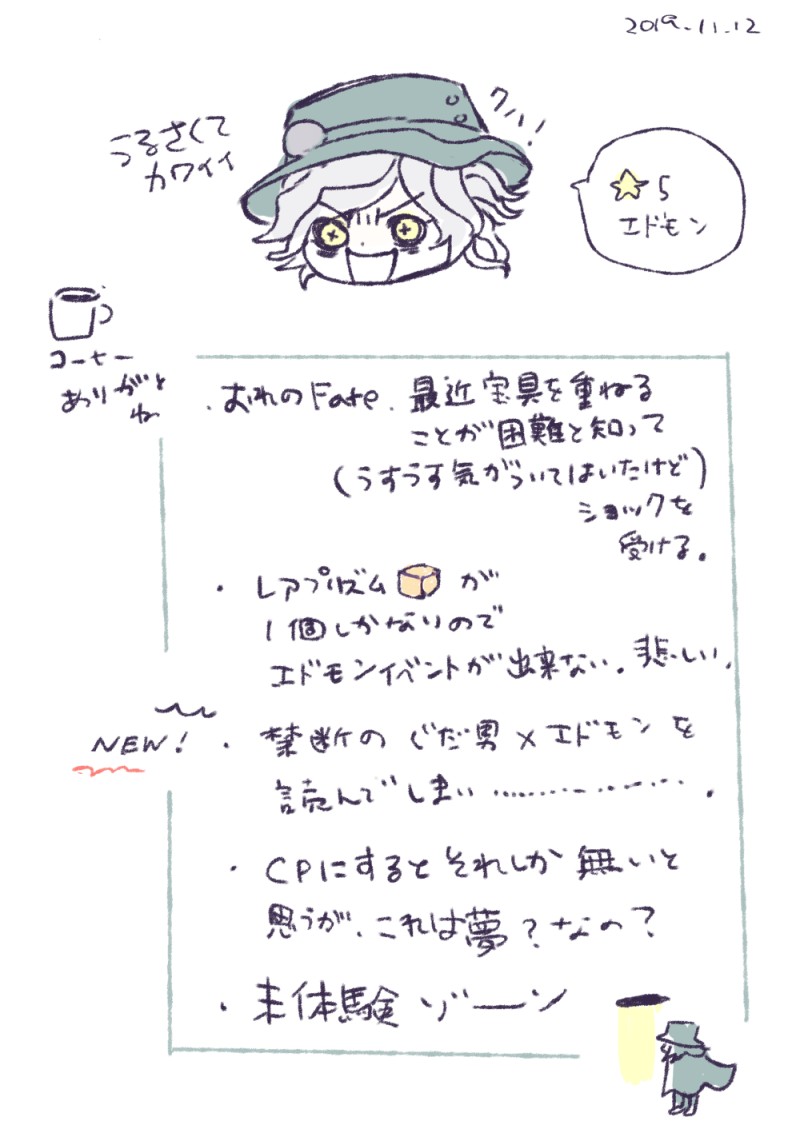 2019.11.12
うるさくて
カワイイ
クハハ!
★5
エドモン
コーヒー
ありがと
ね
・おれのFate、最近宝具を重ねる
ことが困難と知って
(うすうす気がついてはいたけど)
ショックを
受ける。
・レアプリズムが
1個しかないので
エドモンイベントが出来ない。悲しい。
NEW!
・禁断のぐだ男×エドモンを
読んでしまい…………。
・CPにするとそれしか無いと
思うが、これは夢?なの?
・未体験ゾーン